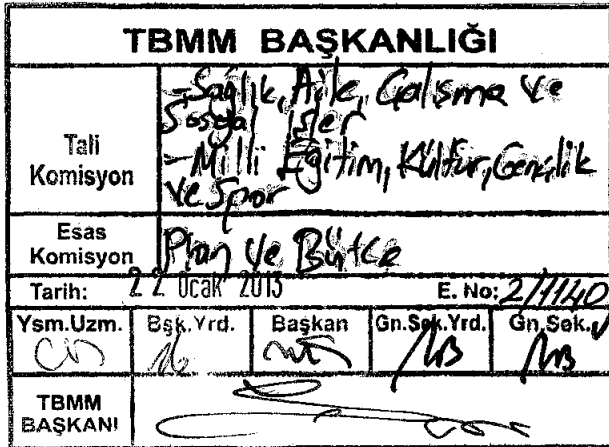 TBMM BAŞKANLIĞI
Tali Komisyon
-Sağlık, Aile, Çalışma ve
Sosyal İşler
-Milli Eğitim, Kültür, Gençlik
ve Spor
Esas Komisyon
Plan ve Bütçe
Tarih: 22 Ocak 2013 E. No: 2/1140
Ysm.Uzm. Bşk.Yrd. Başkan Gn.Sek.Yrd. Gn.Sek.
TBMM
BAŞKANI